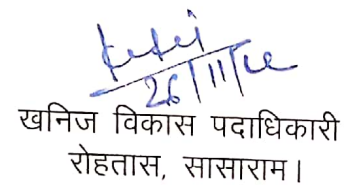 26/11/22
खनिज विकास पदाधिकारी
रोहतास, सासाराम।